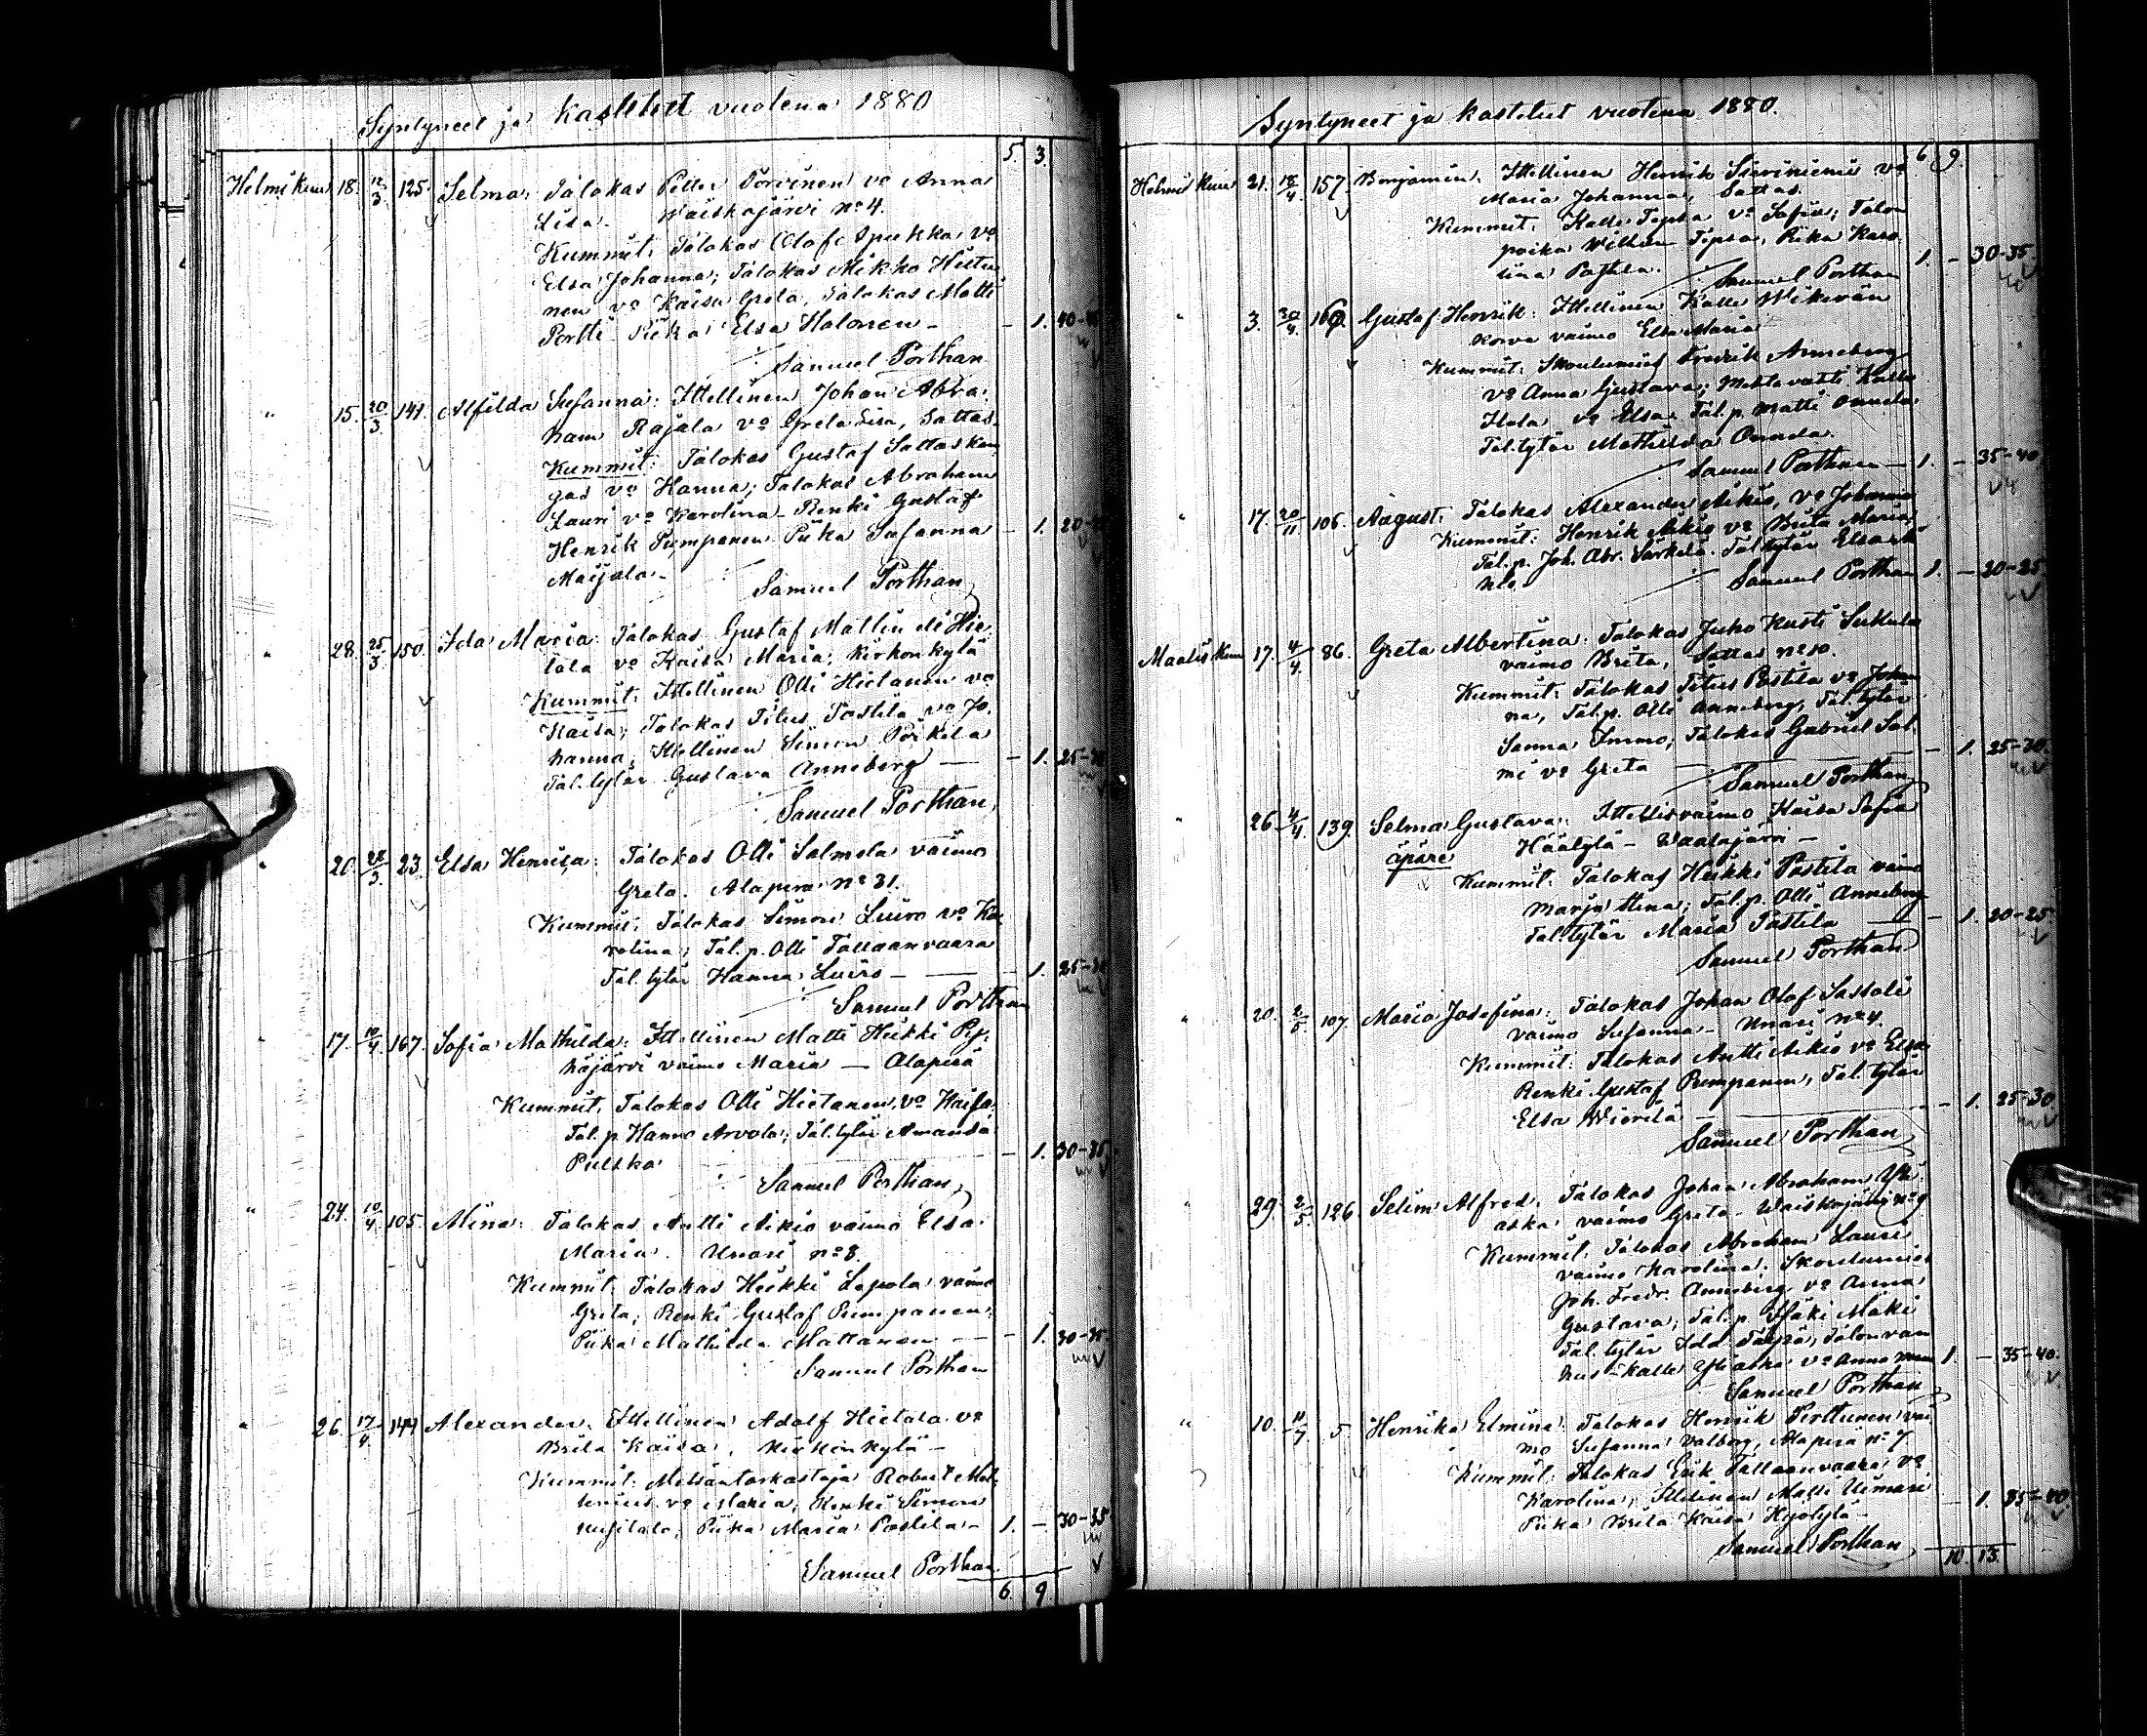 Syntyneet ja kastetut vuotena 1880
5. 3.
Helmi kuu 18. 12/3 125. Selma: Talokas Petter Törvinen vo Anna
Lisa. Waiskojärvi No 4.
Kummit: Talokas Olof vo
Elsa Johanna; Talokas Mikko Hieta
nen vo Kaisa Greta, Talokas Matti
Portti Piika Elsa Halonen - - 1. 40-
Samuel Porthan
" 15. 20/3 141. Alfilda Susanna: Ittellinen Johan Abra-
ham Rajala vo Greta Lisa, Sattas-
Kummit: Talokas Gustaf Sattaskan
gas vo Hanna; Talokas Abraham
Lauri vo Karolina - Renki Gustaf
Henrik Pumpanen Piika Susanna - 1. 20-
Maijala - Samuel Porthan
" 28. 25/3 150. Ida Maria: Talokas Gustaf Hie-
tala vo Kaisa Maria; Kirkonkylä
Kummit: Ittellinen Olli Hietanen vo
Kaisa; Talokas Titus Postila vo Jo-
hanna; Ittellinen Simon
Tal. tytär Gustava Anneberg - 1. 25-
Samuel Porthan
" 20. 28/3 23. Elsa Henrika: Talokas Olli Salmela vaimo
Greta. Alaperä No 31.
Kummit: Talokas Simon Luiro vo Ka-
rolina; Tal. p. Olli Tallaanvaara
Tal. tytär Hanna Luiro - - 1. 25-
Samuel Porthan
17. 10/4 167. Sofia Mathilda: Ittellinen Matti Heikki Py-
häjärvi vaimo Maria - Alaperä
Kummit: Talokas Olli Hietanen, vo Kaisa,
Tal. p. Hannu Arvola; Tal. tytär Amanda
Pulska - 1. 30-35
Samuel Porthan
" 24. 10/4 105. Mina: Talokas Antti Aikio vaimo Elsa
Maria. Unari No 8.
Kummit: Talokas Heikki Lepola vaimo
Greta; Renki Gustaf Pumpanen;
Piika Mathilda Mattanen - 1. 30-35.
Samuel Porthan
" 26. 17/4 144 Alexander: Ittellinen Adolf Hietala vo
Brita Kaisa, Kirkonkylä -
Kummit: Metsäntarkastaja Robert
vo Maria; Renki Simon
Piika Maria Postila - 1. - 30-35
Samuel Porthan
6. 9.
Syntyneet ja kastetut vuotena 1880.
6. 9.
Helmi kuu 21. 18/4 157. Benjamin: Ittellinen Henrik Siviniemi vo
Maria Johanna, Sattas.
Kummit: Kalle Tepsa vo Sofia; Talon
poika Wilhem Tepsa, Piika Karo-
lina Postila. 1. - 30-35.
Samuel Porthan
" 3. 30/4 160. Gustaf Henrik: Ittellinen Kalle
korva vaimo Elsa Maria
Kummit: Fredrik Anneberg
vo Anna Gustava; Kalle
vo Elsa Tal. p. Matti Onnela
Tal. tytär Mathilda Onnela.
Samuel Porthan - 1. - 35-40
" 17. 20/11 106. August: Talokas Alexander Aikio, vo Johanna
Kummit: Henrik Aikio vo Brita Maria
Tal. p. Joh. Abr. Särkelä. Tal. tytär Elsa
Samuel Porthan 1. - 20-25
Maalis kuu 17. 4/4 86. Greta Albertina: Talokas Juho Kusti
vaimo Brita, Sattas No 10.
Kummit: Talokas Titus Postila vo Johan
na, Tal. p. Olli Anneberg, Tal. tytär
Sanna Immo; Talokas Gabriel Sal-
mi vo Greta - 1. 25-30.
Samuel Porthan
" 26. 4/4 139. Selma Gustava: Ittellisvaimo Kaisa Sofia
äpäre - Waalajärvi -
Kummit: Talokas Heikki Postila vaimo
Marja Stina; Tal. p. Olli Anneberg
Tal. tytär Maria Postila - 1. 20-25
Samuel Porthan
" 20. 2/5 107. Maria Josefina: Talokas Johan Olof Sassali
vaimo Susanna - Unari No 4.
Kummit: Talokas Antti Aikio vo Elsa
Renki Gustaf Pumpanen, Tal. tytär
Elsa - 1. 25-30
Samuel Porthan
" 29. 2/5 126. Selim Alfred: Talokas Johan Abraham Yli-
aska vaimo Greta - Waiskojärvi No 9
Kummit: Talokas Abraham Lauri
vaimo Karolina:
Joh. Fredr. Anneberg vo Anna
Gustava; Tal. p. Mäki
Tal. tytär Ida Talonvan
hus - Kalle Yliaska vo Anna 1. - 35-40.
Samuel Porthan
" 10. 11/7 5. Henrika Elmina: Talokas Henrik Perttunen vai
mo Susanna Valborg, Alaperä No 7
Kummit: Talokas Erik Tallaanvaara vo
Karolina; Ittellinen Matti
Piika Brita Kaisa - 1. 35-40
Samuel Porthan
10. 13.